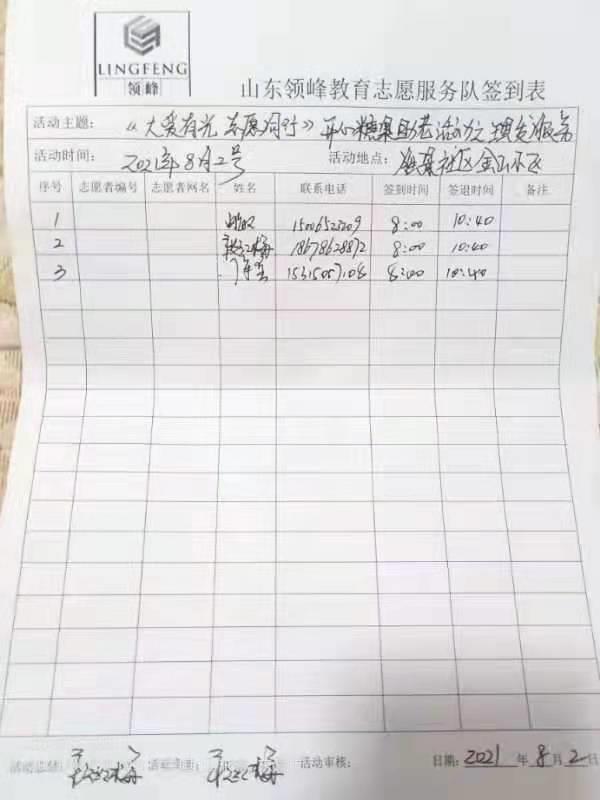 LINGFENG
领峰
山东领峰教育志愿服务队签到表
活动主题: 《大爱有光 志愿同行》开心糖果助老活动之理发服务
活动时间: 2021年8月2号 活动地点: 社区金山小区
序号 志愿者编号 志愿者网名 姓名 联系电话 签到时间 签退时间 备注
1 15006523209 8:00 10:40
2 红梅 18678628872 8:00 10:40
3 15315057108 8:00 10:40
活动总结: 红梅 红梅 活动审核: 日期: 2021 年 8 月 2 日